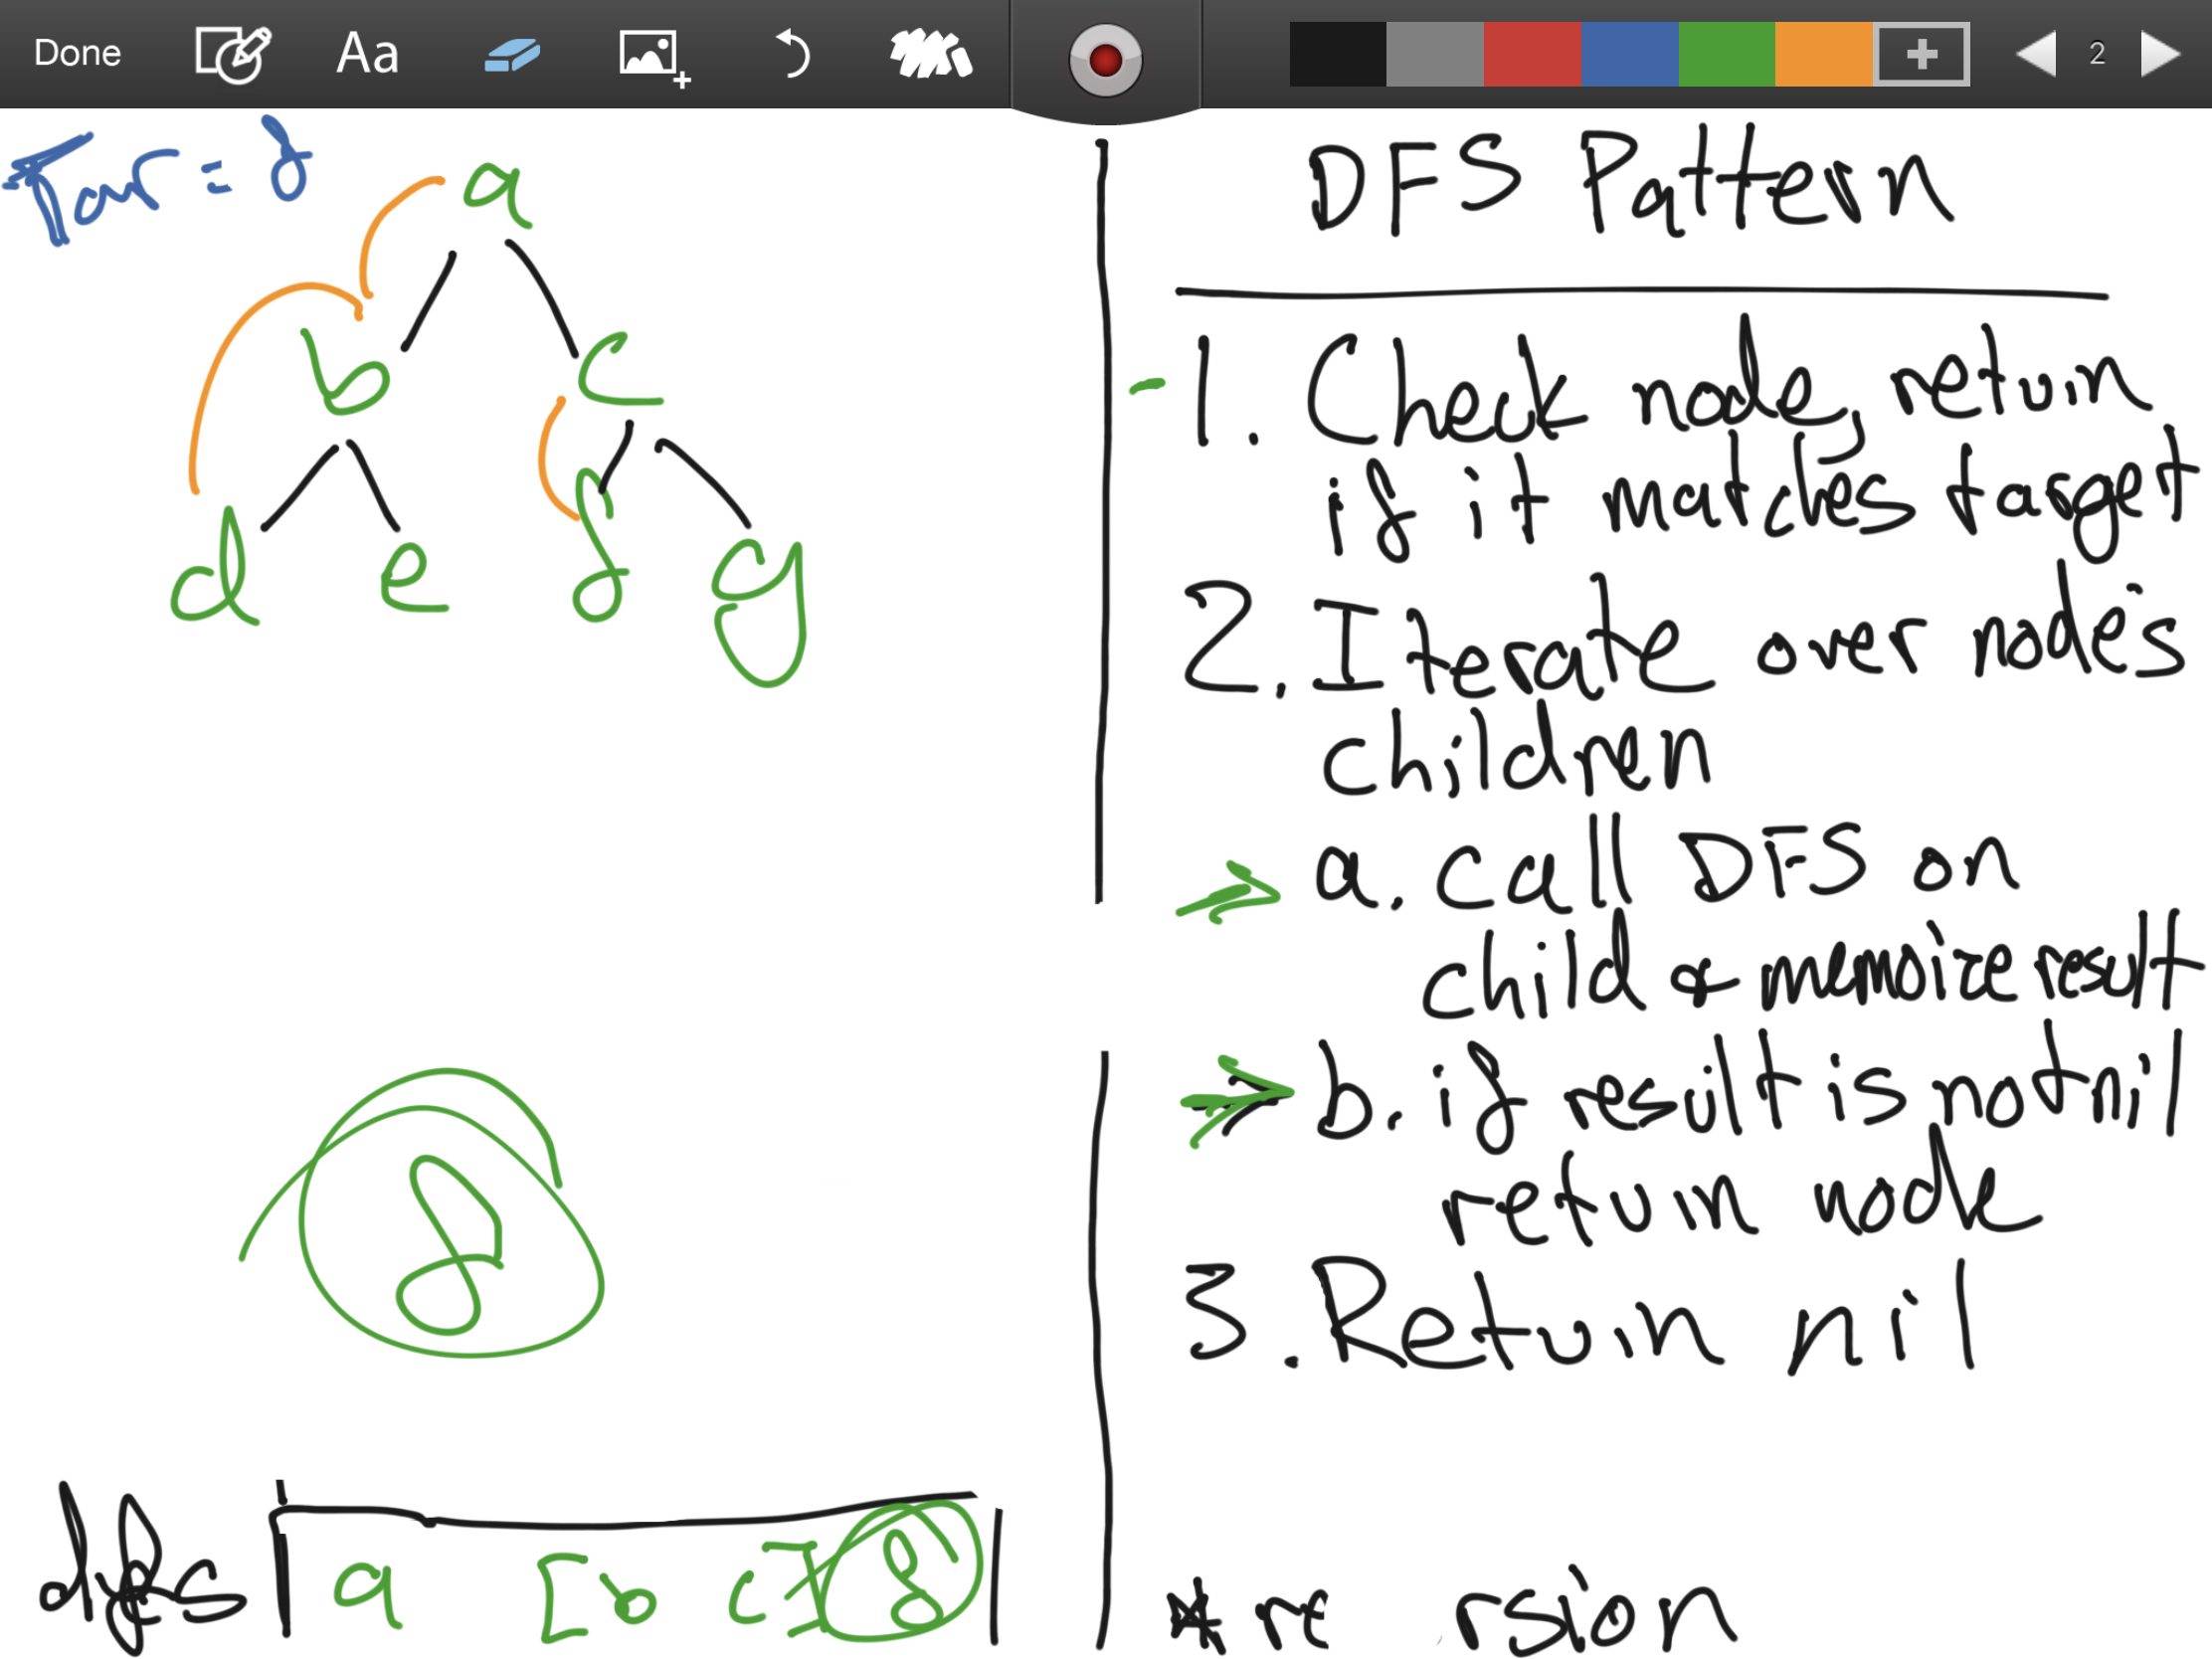 Done
Aa
2
Tar = f
a
b c
d e f g
f
dfs a [b c] f
DFS Pattern
1. Check node, return
if it matches target
2. Iterate over node's
children
a. call DFS on
child & memoize result
b. if result is not nil
return node
3. Return nil
* re rsion